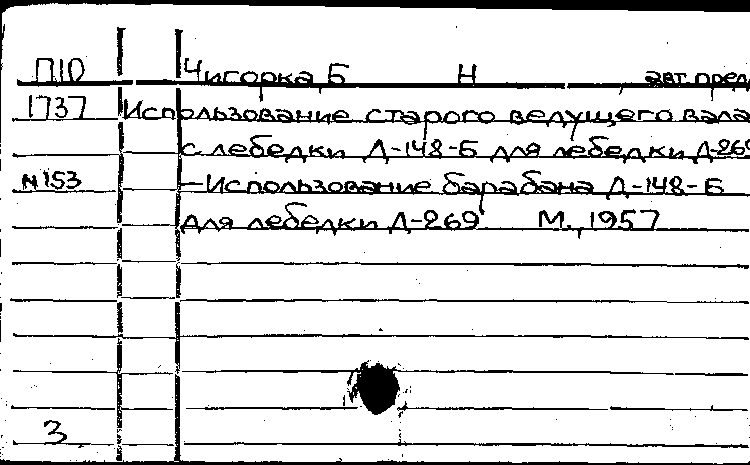 П10 Чигорка, Б Н авт. пред
1737 Использование старого ведущего вала
с лебедки Д-148-Б для лебедки Д-269
N153 —Использование барабана Д-148-Б
для лебедки Д-269 М., 1957
3